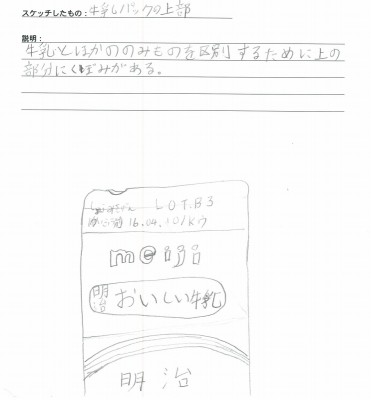 スケッチしたもの：牛乳パックの上部
説明：
牛乳とほかののみものを区別するために上の
部分にくぼみがある。
LOT.B3
16.04.10/Kウ
meiji
明治 おいしい牛乳
明治